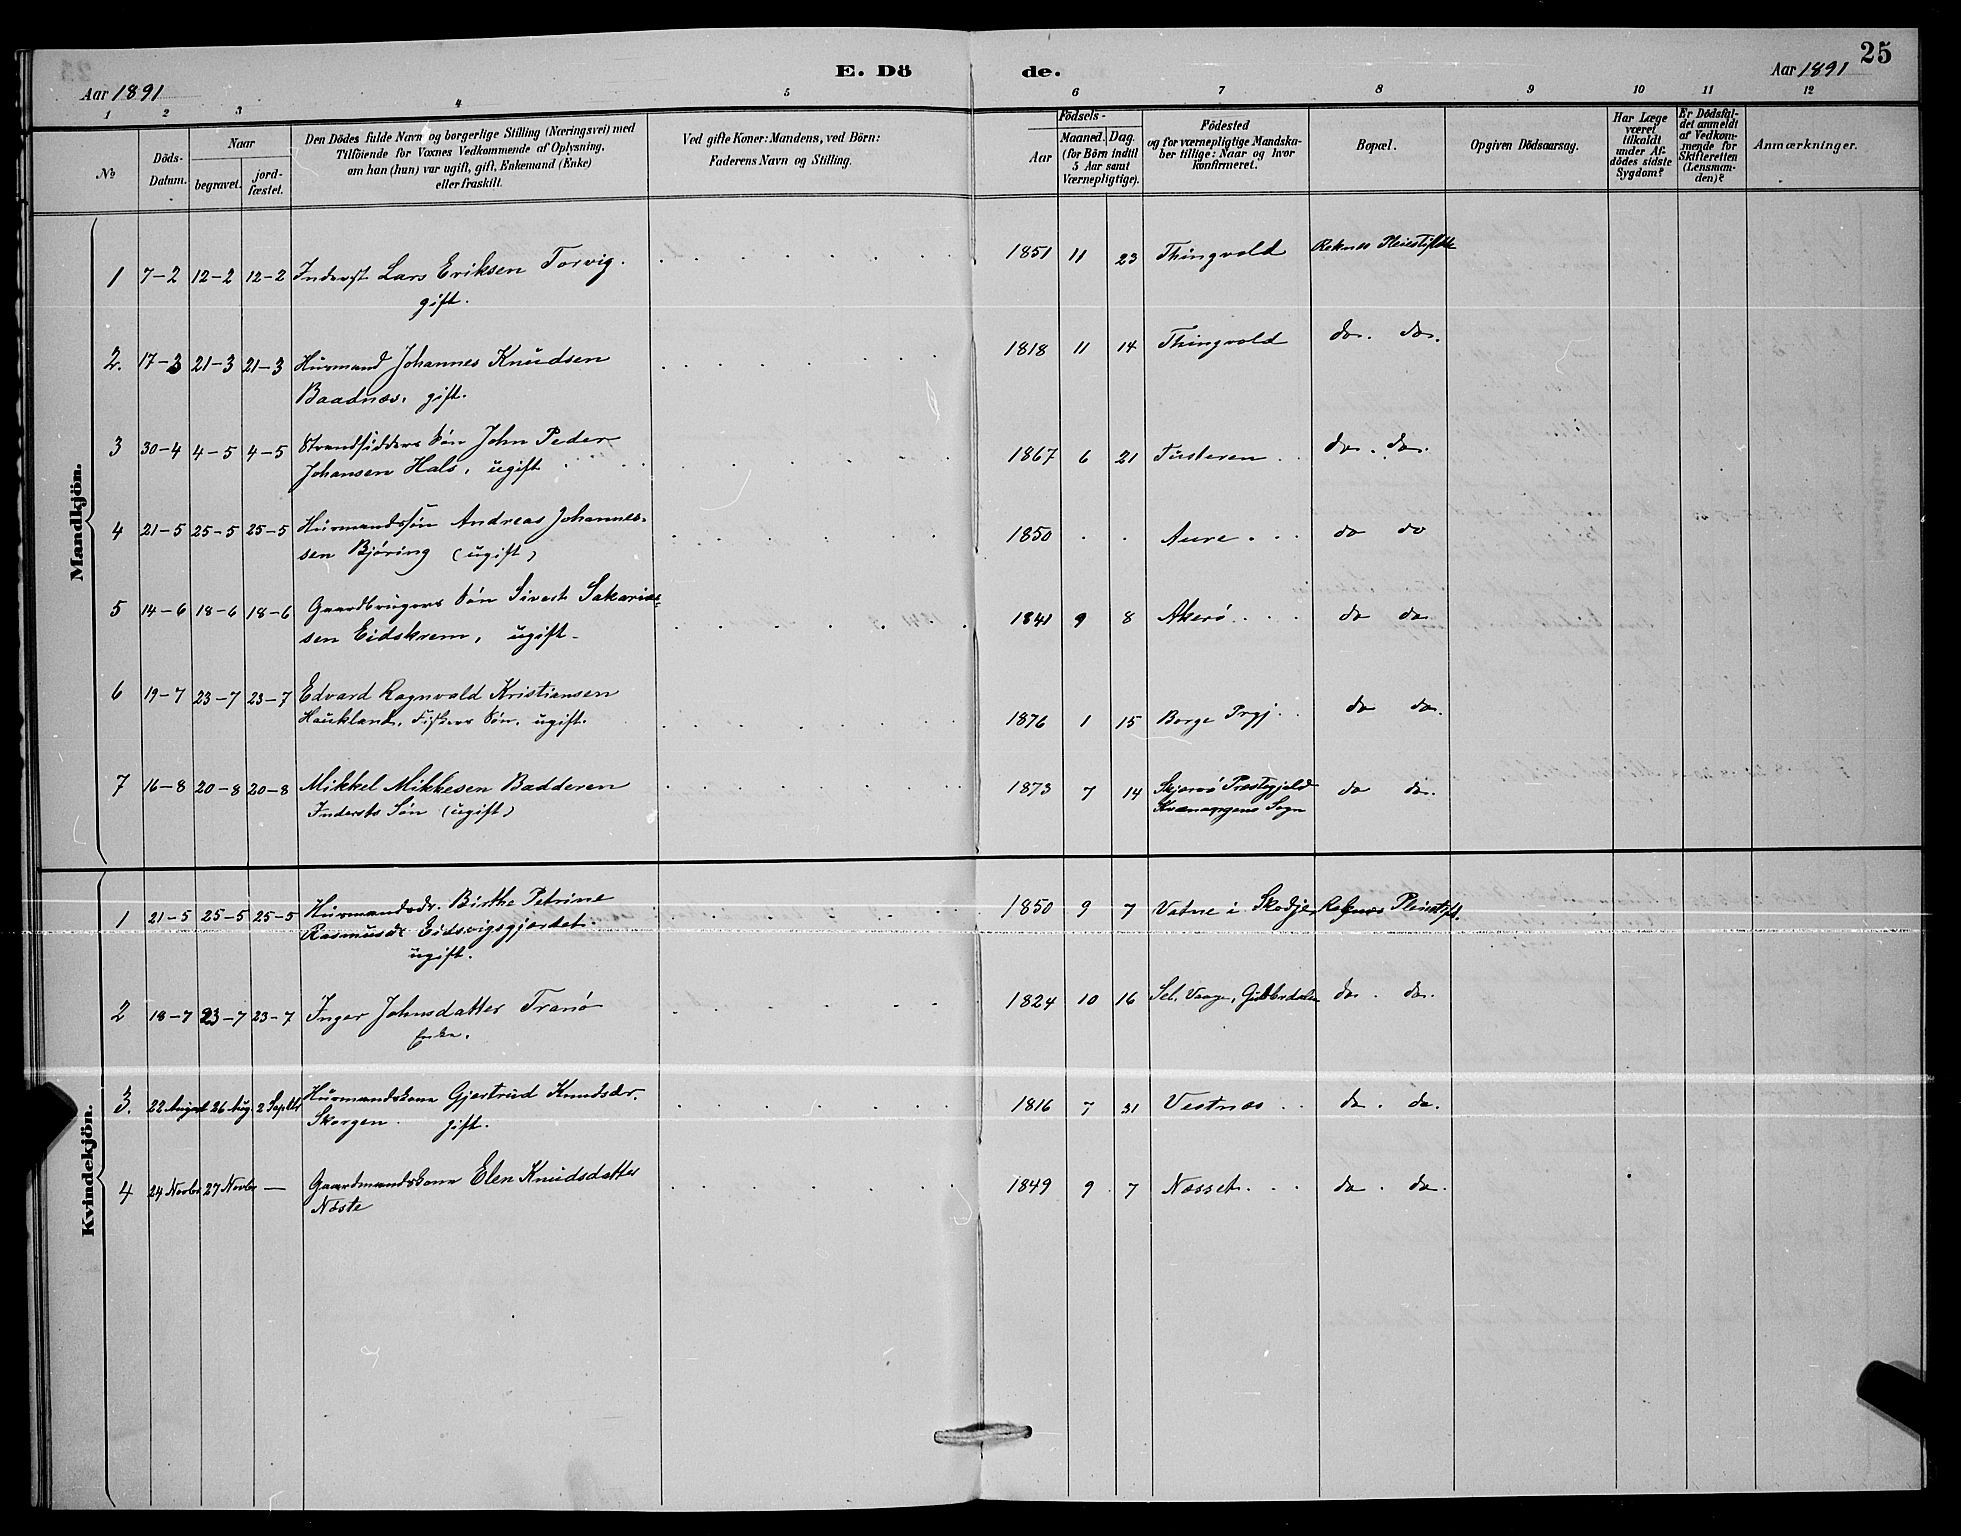 25
E. Dö de.
Aar 1891 Aar 1891
1 2 3 4 5 6 7 8 9 10 11 12
№
Döds-Datum.
Naar
begravet. jord-fæstet.
Den Dödes fulde Navn og borgerlige Stilling (Næringsvei) med
Tilföiende for Voxnes Vedkommende af Oplysning,
om han (hun) var ugift, gift, Enkemand (Enke)
eller fraskilt.
Ved gifte Koner: Mandens, ved Börn:
Faderens Navn og Stilling.
Födsels-
Aar Maaned. Dag.
(for Börn indtil
5 Aar samt
Værnepligtige).
Födested
og for værnepligtige Mandska-
ber tillige: Naar og hvor
konfirmeret.
Bopæl.
Opgiven Dödsaarsag.
Har Læge
været
tilkaldt
under Af-
dödes sidste
Sygdom?
Er Dödsfal-
det anmeldt
af Vedkom-
mende for
Skifteretten
(Lensman-
den)?
Anmærkninger.
Mandkjön.
1 7-2 12-2 12-2 Inderst Lars Eriksen Torvig. 1851 11 23 Thingvold Reknes Pleiestiftelse
gift.
2. 17-3 21-3 21-3 Husmand Johannes Knudsen 1818 11 14 Thingvold do. do.
Baadnæs. gift.
3 30-4 4-5 4-5 Strandsidders Søn John Peder
Johansen Hals, ugift 1867 6 21 Tusteren do. do.
4 21-5 25-5 25-5 Husmandssøn Andreas Johannes-
sen Bjøring (ugift) 1850 Aure do do
5 14-6 18-6 18-6 Gaardbrugers Søn Sivert Sakarias-
sen Eidskrem, ugift 1841 9 8 Akerø do do
6 19-7 23-7 23-7 Edvard Ragnvald Kristiansen
Haukland, Fiskers Søn, ugift. 1876 1 15 Borge Prgj. do do.
7 16-8 20-8 20-8 Mikkel Mikkesen Badderen 1873 7 14 Skjervø Præstegjeld do do.
Inderstes Søn (ugift) Kvænangens Sogn
Kvindekjön.
1 21-5 25-5 25-5 Husmandsdr. Birthe Petrine 1850 9 7 Vatne i Skodje Reknes Pleiestift.
Rasmusdr Eidsvigsgjerdet.
ugift.
2 18-7 23-7 23-7 Inger Johnsdatter Tranø 1824 10 16 Sel, Vaage, Gulbrdalen do. do.
Enke.
3. 22 August 26 Aug 2 Septbr Husmandskone Gjertrud Knudsdr. 1816 7 31 Vestnæs do. do.
Skorgen. gift.
4 24 Novbr 27 Novbr — Gaardmandskone Elen Knudsdatter 1849 9 7 Næsset do. do.
Næste